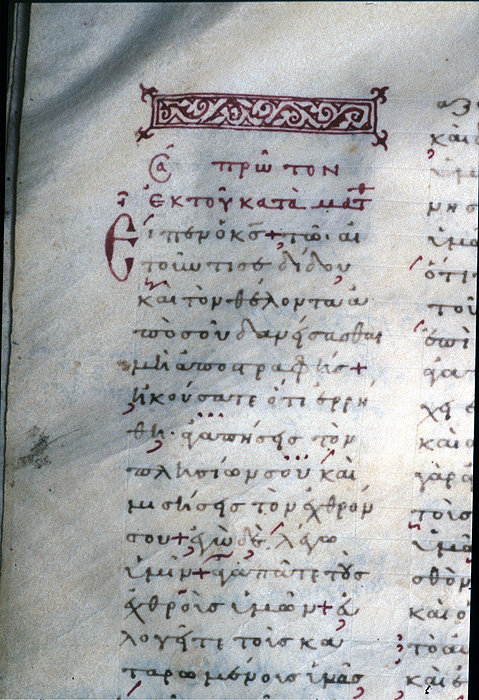 α πρῶτον
ἐκ τοῦ κατὰ ματθ
Εἶπεν ὁ κς + τῷ αἰ
τοῦντι σε δίδου
καὶ τὸν θέλοντα ἀ
πὸ σοῦ δανήσασθαι
μὴ ἀποστραφῆς +
ἠκούσατε ὅτι ἐρρή
θη· ἀγαπήσεις τὸν
πλησίον σου καὶ
μισήσεις τὸν ἐχθρόν
σου + ἐγὼ δὲ λέγω
ὑμῖν + ἀγαπᾶτε τοὺς
ἐχθροὺς ὑμῶν + εὐ
λογεῖτε τοὺς κα
ταρωμένους ὑμᾶς
καὶ
μησ
ὑμα
ὅτι
τοῦ
ἐπὶ
καὶ ο
γὰρ
τοὺσ
ὑμᾶ
σθὸν
καὶ ο
τὸ αυ
καὶ ε